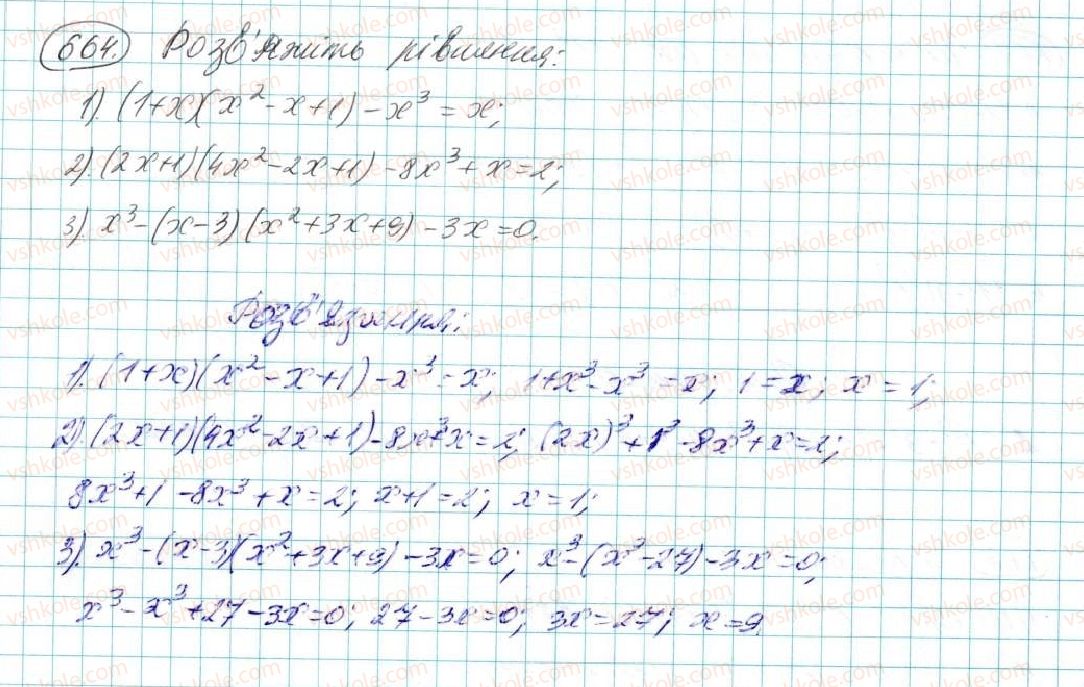 664. Розв'яжіть рівняння:
1). (1+x)(x² - x + 1) - x³ = x;
2). (2x+1)(4x² - 2x + 1) - 8x³ + x = 2;
3). x³ - (x - 3)(x² + 3x + 9) - 3x = 0.
Розв'язання:
1). (1+x)(x² - x + 1) - x³ = x; 1 + x³ - x³ = x; 1 = x; x = 1;
2). (2x+1)(4x² - 2x + 1) - 8x³ + x = 2; (2x)³ + 1³ - 8x³ + x = 2;
8x³ + 1 - 8x³ + x = 2; x + 1 = 2; x = 1;
3). x³ - (x - 3)(x² + 3x + 9) - 3x = 0; x³ - (x³ - 27) - 3x = 0;
x³ - x³ + 27 - 3x = 0; 27 - 3x = 0; 3x = 27; x = 9.
vshkole.com